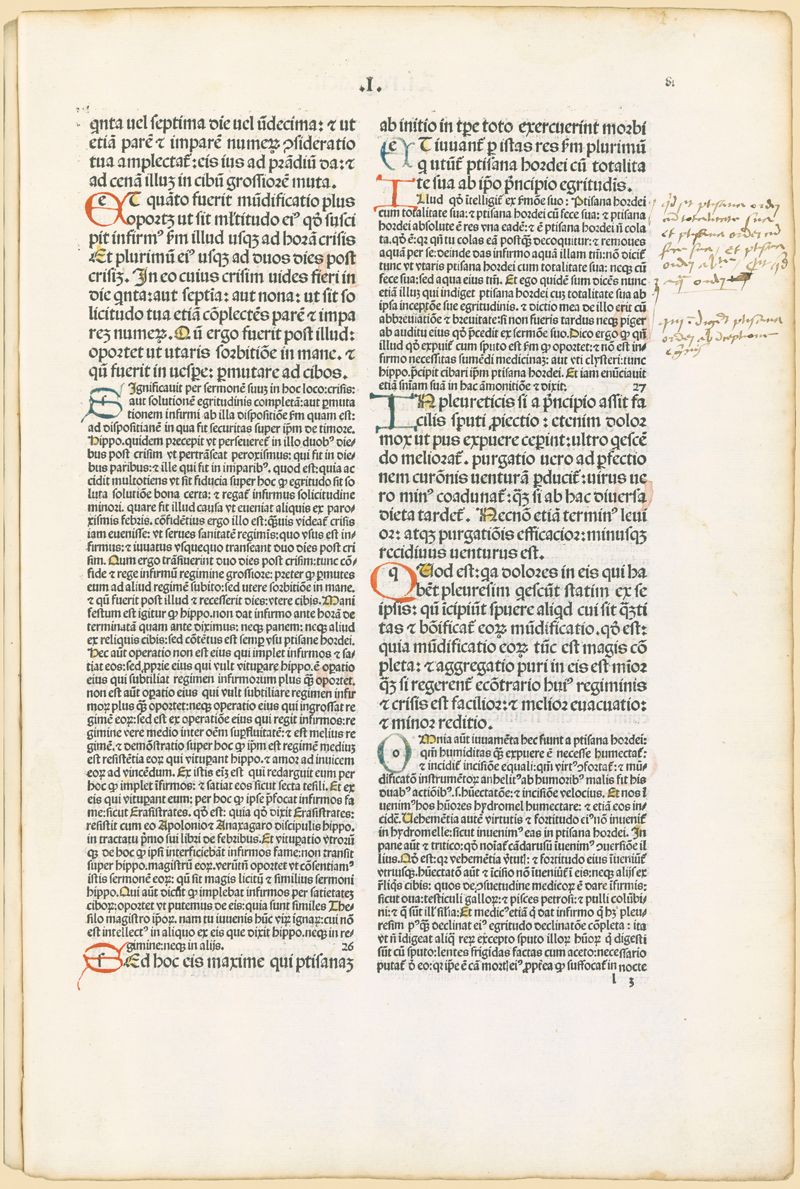 .I.
qnta uel septima die uel ũdecima: ⁊ ut
etiã parẽ ⁊ imparẽ numeꝝ ꝯsideratio
tua amplectat̃: eis ius ad prãdiũ da: ⁊
ad cenã illuꝫ in cibũ grossiorẽ muta.
ET quãto fuerit mũdificatio plus
oportꝫ ut sit ml̃titudo ei⁹ qđ susci
pit infirm⁹ ẜm illud usqꝫ ad horã crisis
Et plurimũ ei⁹ usqꝫ ad duos dies post
crisiꝫ. In eo cuius crisim uides fieri in
die qnta: aut septĩa: aut nona: ut sit so
licitudo tua etiã cõplectẽs parẽ ⁊ impa
reꝫ numeꝝ. Qũ ergo fuerit post illud:
oportet ut utaris sorbitiõe in mane. ⁊
qũ fuerit in uespe: ꝑmutare ad cibos.
Significauit per sermonẽ suuꝫ in hoc loco: crisis:
aut solutionẽ egritudinis completã: aut ꝑmuta
tionem infirmi ab illa dispositiõe ẜm quam est:
ad dispositianẽ in qua fit securitas super ip̃m de timore.
Hippo. quidem precepit vt perseueret̃ in illo duob⁹ die⸗
bus post crisim vt pertrãseat peroxismus: qui fit in die⸗
bus paribus: ⁊ ille qui fit in imparib⁹. quod est: quia ac
cidit multotiens vt fit fiducia super hoc ꝙ egritudo sit so
luta solutiõe bona certa: ⁊ regat̃ infirmus solicitudine
minori. quare fit illud causa vt eueniat aliquis ex paro⸗
xismis febris. cõfidẽtius ergo illo est: q̃uis videat̃ crisis
iam euenisse: vt serues sanitatẽ regimĩs: quo vsus est in⸗
firmus: ⁊ iuuatus vsquequo transeant duo dies post cri
sim. Cum ergo trãsiuerint duo dies post crisim: tunc cõ⸗
fide ⁊ rege infirmũ regimine grossiore: preter ꝙ ꝑmutes
eum ad aliud regimẽ subito: sed utere sorbitiõe in mane.
⁊ qũ fuerit post illud ⁊ recesserit dies: vtere cibis. Mani
festum est igitur ꝙ hippo. non dat infirmo ante horã de
terminatã quam ante diximus: neqꝫ panem: neqꝫ aliud
ex reliquis cibis: sed cõtẽtus est semꝑ vsu ptisane hordei.
Hec aũt operatio non est eius qui implet infirmos ⁊ sa⸗
tiat eos: sed ꝓprie eius qui vult vituꝑare hippo. ẽ oꝑatio
eius qui subtiliat regimen infirmorum plus q̃ꝫ oportet.
non est aũt oꝑatio eius qui vult subtiliare regimen infir
moꝝ plus q̃ꝫ oportet: neqꝫ operatio eius qui ingrossat re
gimẽ eoꝝ: sed est ex operatiõe eius qui regit infirmos: re
gimine vere medio inter oẽm suꝑfluitatẽ: ⁊ est melius re
gimẽ. ⁊ demõstratio super hoc ꝙ ip̃m est regimẽ mediuꝫ
est resistẽtia eoꝝ qui vituꝑant hippo. ⁊ amor ad inuicem
eoꝝ ad vincẽdum. Ex istis eĩꝫ est qui redarguit eum per
hoc ꝙ implet ĩfirmos: ⁊ satiat eos sicut secta tefsili. Et ex
eis qui vituꝑant eum: per hoc ꝙ ipse p̃focat infirmos fa
me: sicut Erasistrates. qđ est: quia qđ dixit Erasistrates:
resistit cum eo Apolonio ⁊ Anaxagaro discipulis hippo.
in tractatu p̃mo sui libri de febribus. Et vituꝑatio vtroꝝ
q̃ꝫ de hoc ꝙ ipsi interficiebãt infirmos fame: non transit
super hippo. magistrũ eoꝝ. verũtñ oportet vt cõsentiam⁹
istis sermonẽ eoꝝ: qũ sit magis licitũ ⁊ similius sermoni
hippo. Qui aũt dicũt ꝙ implebat infirmos per satietateꝫ
ciboꝝ: oportet vt putemus de eis: quia sunt similes The⸗
silo magistro ip̃oꝝ. nam tu iuuenis hũc viꝝ ignaꝝ: cui nõ
est intellect⁹ in aliquo ex eis que dixit hippo. neqꝫ in re⸗
gimine: neqꝫ in alijs. 26
SEd hoc eis maxime qui ptisanaꝫ
ab initio in tp̃e toto exercuerint morbi
ET iuuant̃ ꝑ istas res ẜm plurimũ
q utũt̃ ptisana hordei cũ totalita
te sua ab ip̃o p̃ncipio egritudis.
Illud qđ ĩtelligit̃ ex ẜmõe suo: Ptisana hordei
cum totalitate sua: ⁊ ptisana hordei cũ fece sua: ⁊ ptisana
hordei absolute ẽ res vna eadẽ: ⁊ ẽ ptisana hordei ñ cola
ta. qđ ẽ: qꝛ qñ tu colas eã postq̃ꝫ decoquitur: ⁊ remoues
aquã per se: deinde das infirmo aquã illam tm̃: nõ dicit̃
tunc vt vtaris ptisana hordei cum totalitate sua: neqꝫ cũ
fece sua: sed aqua eius tm̃. Et ego quidẽ sum dicẽs nunc
etiã illuꝫ qui indiget ptisana hordei cuꝫ totalitate sua ab
ipsa inceptõe sue egritudinis. ⁊ dictio mea de illo erit cũ
abbreuiatiõe ⁊ breuitate: si non fueris tardus neqꝫ piger
ab auditu eius qđ p̃cedit ex sermõe suo. Dico ergo ꝙ qñ
illud qđ expuit̃ cum sputo est ẜm ꝙ oportet: ⁊ nõ est in⸗
firmo necessitas sumẽdi medicinaꝫ: aut vti clysteri: tunc
hippo. p̃cipit cibari ip̃m ptisana hordei. Et iam enũciauit
etiã sñiam suã in hac ãmonitiõe ⁊ dixit. 27
IN pleureticis si a p̃ncipio assit fa
cilis sputi ꝓiectio: etenim dolor
mox ut pus expuere ceperint: ultro q̃escẽ
do meliorat̃. purgatio uero ad ꝑfectio
nem curõnis uenturã ꝑducit̃: uirus ue
ro min⁹ coadunat̃: qꝫ si ab hac diuersa
dieta tardet̃. Necnõ etiã termin⁹ leui
or: atqꝫ purgatiõis efficacior: minusqꝫ
recidiuus uenturus est.
QUod est: qa dolores in eis qui ha
bẽt pleuresim q̃escũt statim ex se
ipsis: qũ ĩcipiũt spuere aliqd cui sit q̃ꝫti
tas ⁊ bõificat̃ eoꝝ mũdificatio. qđ est:
quia mũdificatio eoꝝ tũc est magis cõ
pleta: ⁊ aggregatio puri in eis est mior
qꝫ si regerent̃ ecõtrario hui⁹ regiminis
⁊ crisis est facilior: ⁊ melior euacuatio:
⁊ minor reditio.
OMnia aũt iuuamẽta hec sunt a ptisana hordei:
qm̃ humiditas q̃ꝫ expuere ẽ necesse humectat̃:
⁊ incidit̃ incisiõe equali: qñ virt⁹ ꝯfortat̃: ⁊ mũ⸗
dificatõ instrumẽtoꝝ anhelit⁹ ab humorib⁹ malis fit his
duab⁹ actiõib⁹. s. hũectatõe: ⁊ incisiõe velocius. Et nos ĩ
uenim⁹ hos hũores hydromel humectare: ⁊ etiã eos in⸗
cidẽ. Uehemẽtia autẽ virtutis ⁊ fortitudo ei⁹ nõ inuenit̃
in hydromelle: sicut inuenim⁹ eas in ptisana hordei. In
pane aũt ⁊ tritico: qđ noĩat̃ cãdarusũ ĩuenim⁹ ꝯuersiõe il
lius. Qđ est: qꝛ vehemẽtia v̾tut̃: ⁊ fortitudo eius ĩueniũt̃
vtrusqꝫ. hũectatõ aũt ⁊ ĩcisio nõ ĩueniũt̃ ĩ eis: neqꝫ alijs ex
r̃liq̃s cibis: quos de ꝯsuetudine medicoꝝ ẽ dare ĩfirmis:
sicut oua: testiculi galloꝝ: ⁊ pisces petrosi: ⁊ pulli colũbi⸗
ni: ⁊ q̃ sũt ill⁹ siĩlia: Et medic⁹ etiã q̃ dat infirmo q̃ hꝫ pleu⸗
resim p⁹q̃ꝫ declinat ei⁹ egritudo declinatõe cõpleta: ita
vt ñ ĩdigeat aliq̃ reꝝ excepto sputo illoꝝ hũoꝝ q̃ digesti
sũt cũ sputo: lentes frigidas factas cum aceto: necessario
putat̃ ð eo: qꝛ ip̃e ẽ cã mort̃ ei⁹ ꝓpt̾ea ꝙ suffocat̃ in nocte
l 3